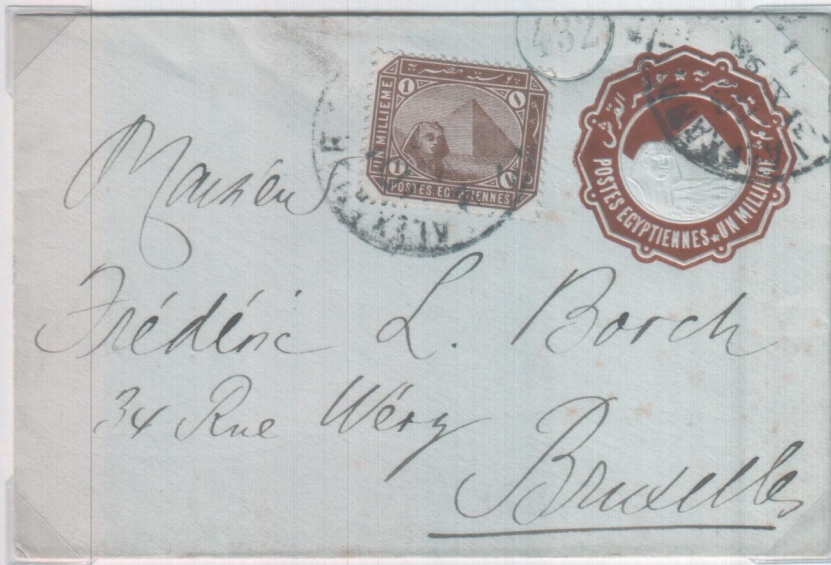 432
بوسته مصرية
1 ١
UN MILLIEME
1 ١
POSTES EGYPTIENNES
POSTES EGYPTIENNES * UN MILLIEME
ALEX
Monsieur
Frédéric L. Borch
34 Rue Wéry
Bruxelles